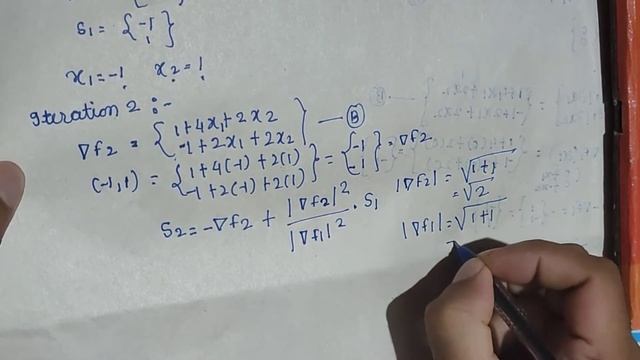 S₁ = {-1 1}
x₁ = -1 x₂ = 1
Iteration 2 :-
∇f₂ = {1+4x₁+2x₂ -1+2x₁+2x₂} — Ⓑ
(-1,1) = {1+4(-1)+2(1) -1+2(-1)+2(1)} = {-1 -1} = ∇f₂
|∇f₂| = √1+1
= √2
S₂ = -∇f₂ + |∇f₂|²/|∇f₁|² . S₁
|∇f₁| = √1+1